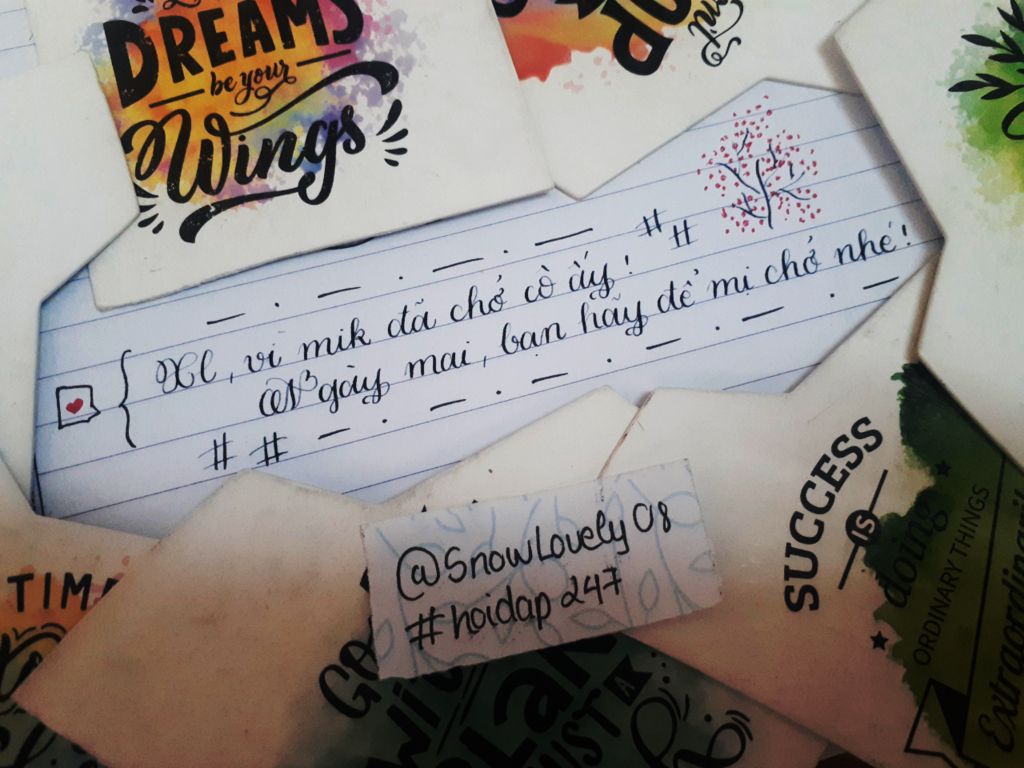 DREAMS
be your
Wings
# #
Xl, vì mik đã chở cò ấy!
Ngày mai, bạn hãy để mị chở nhé!
# #
@SnowLovely08
#hoidap247
SUCCESS
IS
doing
ORDINARY THINGS
Extraordinarily
TIM